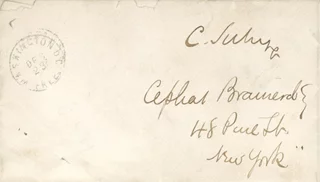 WASHINGTON D.C.
FREE
Cephas Brainerd Esq
48 Pine St.
New York